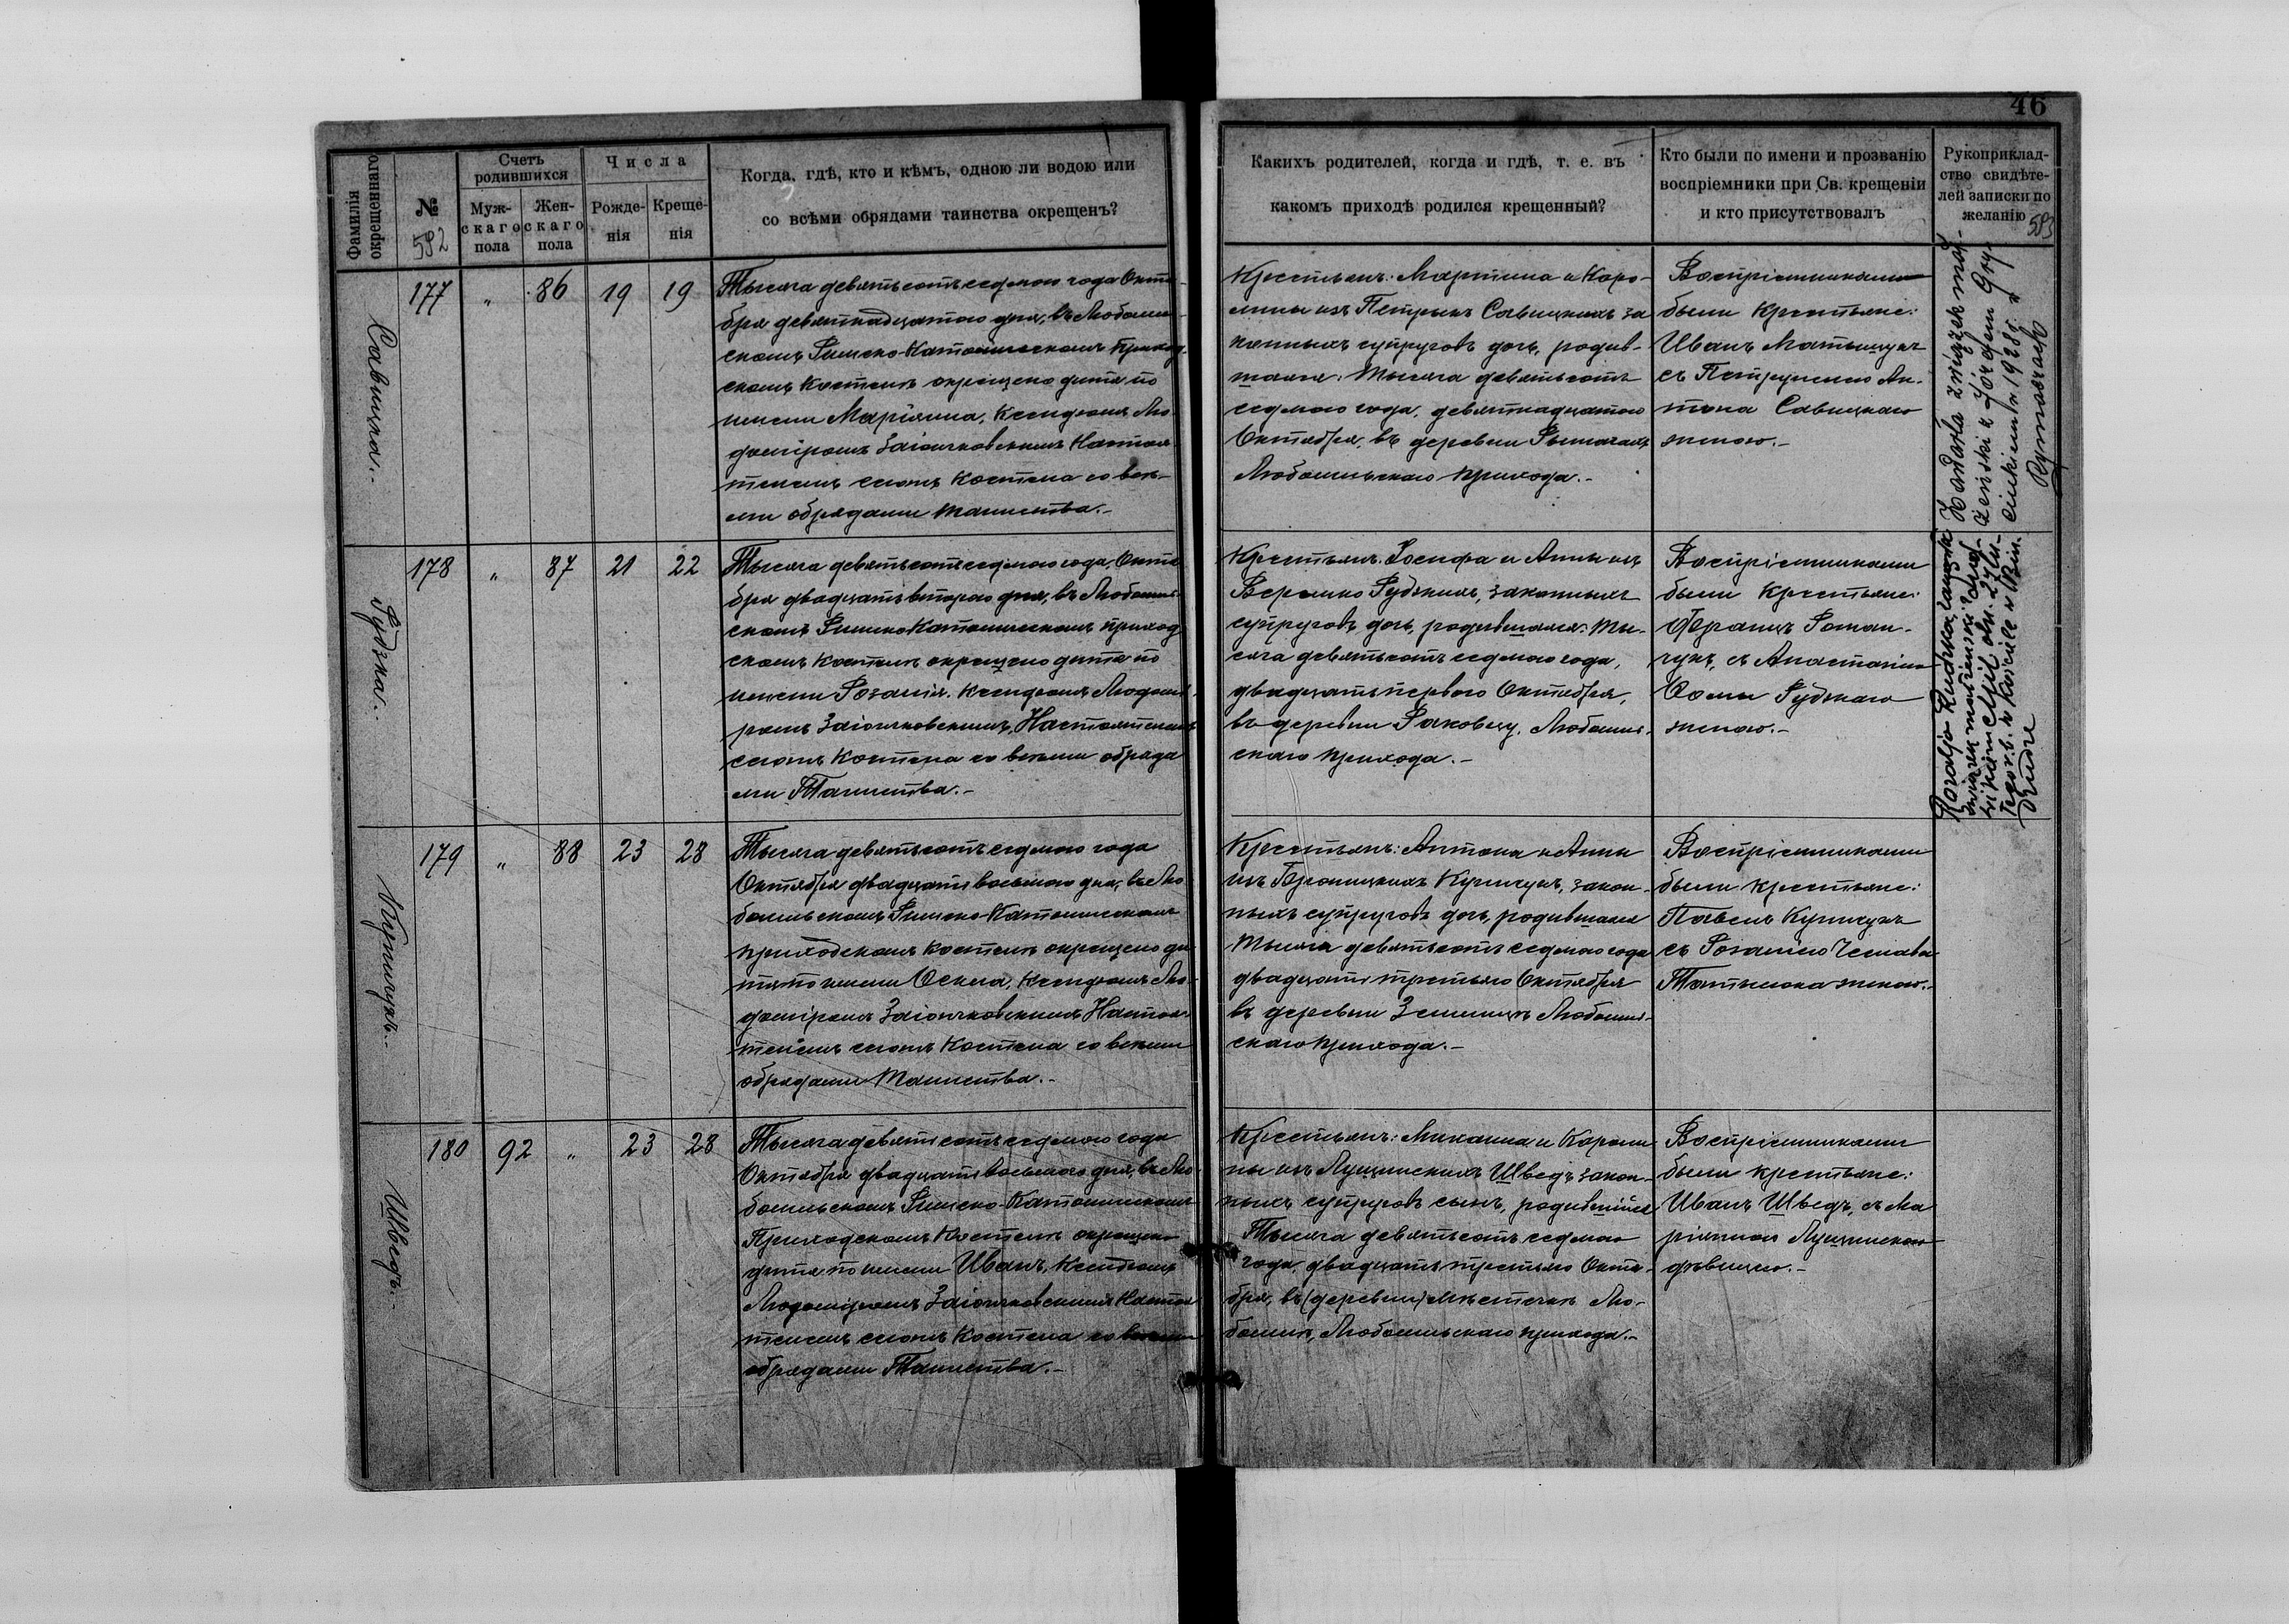 46
Фамилія окрещеннаго
№
592
Счетъ родившихся
Муж-
скаго
пола
Жен-
скаго
пола
Числа
Рожде-
нія
Креще-
нія
Когда, гдѣ, кто и кѣмъ, одною ли водою или
со всѣми обрядами таинства окрещенъ?
Какихъ родителей, когда и гдѣ, т. е. въ
какомъ приходѣ родился крещенный?
Кто были по имени и прозванію
воспріемники при Св. крещеніи
и кто присутствовалъ
Рукоприклад-
ство свидѣте-
лей записки по
желанію
593
Савицка.
177 „ 86 19 19
Тысяча девятьсотъ седмого года Октя-
бря девятнадцатого дня, въ Любомль-
скомъ Римско-Католическомъ Приход-
скомъ Костелѣ окрещено дитя по
имени Маріянна, Ксендзомъ Лю-
доміромъ Заіончковскимъ Настоя-
телемъ сегожъ Костела со всѣ-
ми обрядами таинства.-
Крестьянъ: Мартина и Каро-
лины изъ Петрыкъ Савицкихъ за
конныхъ супруговъ дочь, родив-
шаяся: тысяча девятьсотъ
седмого года, девятнадцатого
Октября, въ деревни Рымачахъ
Любомльскаго прихода.-
Воспріемниками
были Крестьяне:
Иванъ Матыщукъ
съ Петрунелею Ан-
тона Савицкаго
женою.-
Zawarła związek mał-
żeński z Józefem Gry-
1928 r. w
Rymaczach
Рудзка.
178 „ 87 21 22
Тысяча девятьсотъ седмого года, Октя
бря двадцать второго дня, въ Любомль-
скомъ Римско Католическомъ приход
скомъ Костелѣ окрещено дитя по
имени Розалія, Ксендзомъ Людомі-
ромъ Заіончковскимъ, Настоятелемъ
сегожъ Костела со всѣми обряда
ми Таинства.-
Крестьянъ: Іосифа и Анны изъ
Веремко Рудзкихъ, законныхъ
супруговъ дочь, родившаяся: ты-
сяча девятьсотъ седмого года,
двадцать первого Октября,
въ деревни Раковцу, Любомль-
скаго прихода.-
Воспріемниками
были Крестьяне:
Францъ Роман-
чукъ, съ Анастазіею
Фомы Рудзкаго
женою.-
Rozalja Rudzka zawarła
związek małżeński
27 lu-
tego r. b. w Kościele w
Купычукъ.
179 „ 88 23 28
Тысяча девятьсотъ седмого года
Октября двадцать восьмого дня, въ Лю
бомльскомъ Римско-Католическомъ
приходскомъ Костелѣ окрещено ди-
тя по имени Осния, Ксендзомъ Лю-
доміромъ Заіончковскимъ Настоя-
телемъ сегожъ Костела со всѣми
обрядами Таинства.-
Крестьянъ: Антона и Анны
изъ Броницкихъ Купычукъ, закон-
ныхъ супруговъ дочь, родившаяся
тысяча девятьсотъ седмого года
двадцать третьяго Октября
въ деревни Земницѣ Любомль-
скаго прихода.-
Воспріемниками
были крестьяне:
Павелъ Купычукъ
съ Розаліею Чеслава
женою.-
Шведъ.
180 92 „ 23 28
Тысяча девятьсотъ седмого года
Октября двадцать восьмого дня, въ Лю-
бомльскомъ Римско-Католическомъ
Приходскомъ Костелѣ окрещено
дитя по имени Иванъ, Ксендзомъ
Людоміромъ Заіончковскимъ Настоя
телемъ сегожъ Костела со всѣми
обрядами Таинства.-
Крестьянъ: Михаила и Кароли
ны изъ Лущинскихъ Шведъ закон-
ныхъ супруговъ сынъ, родившійся
Тысяча девятьсотъ седмого
года, двадцать третьяго Октя-
бря, въ (деревни) мѣстечкѣ Лю-
бомлѣ, Любомльскаго прихода.-
Воспріемниками
были крестьяне:
Иванъ Шведъ, съ Ма
ріянною Лущинскою
дѣвицею.-